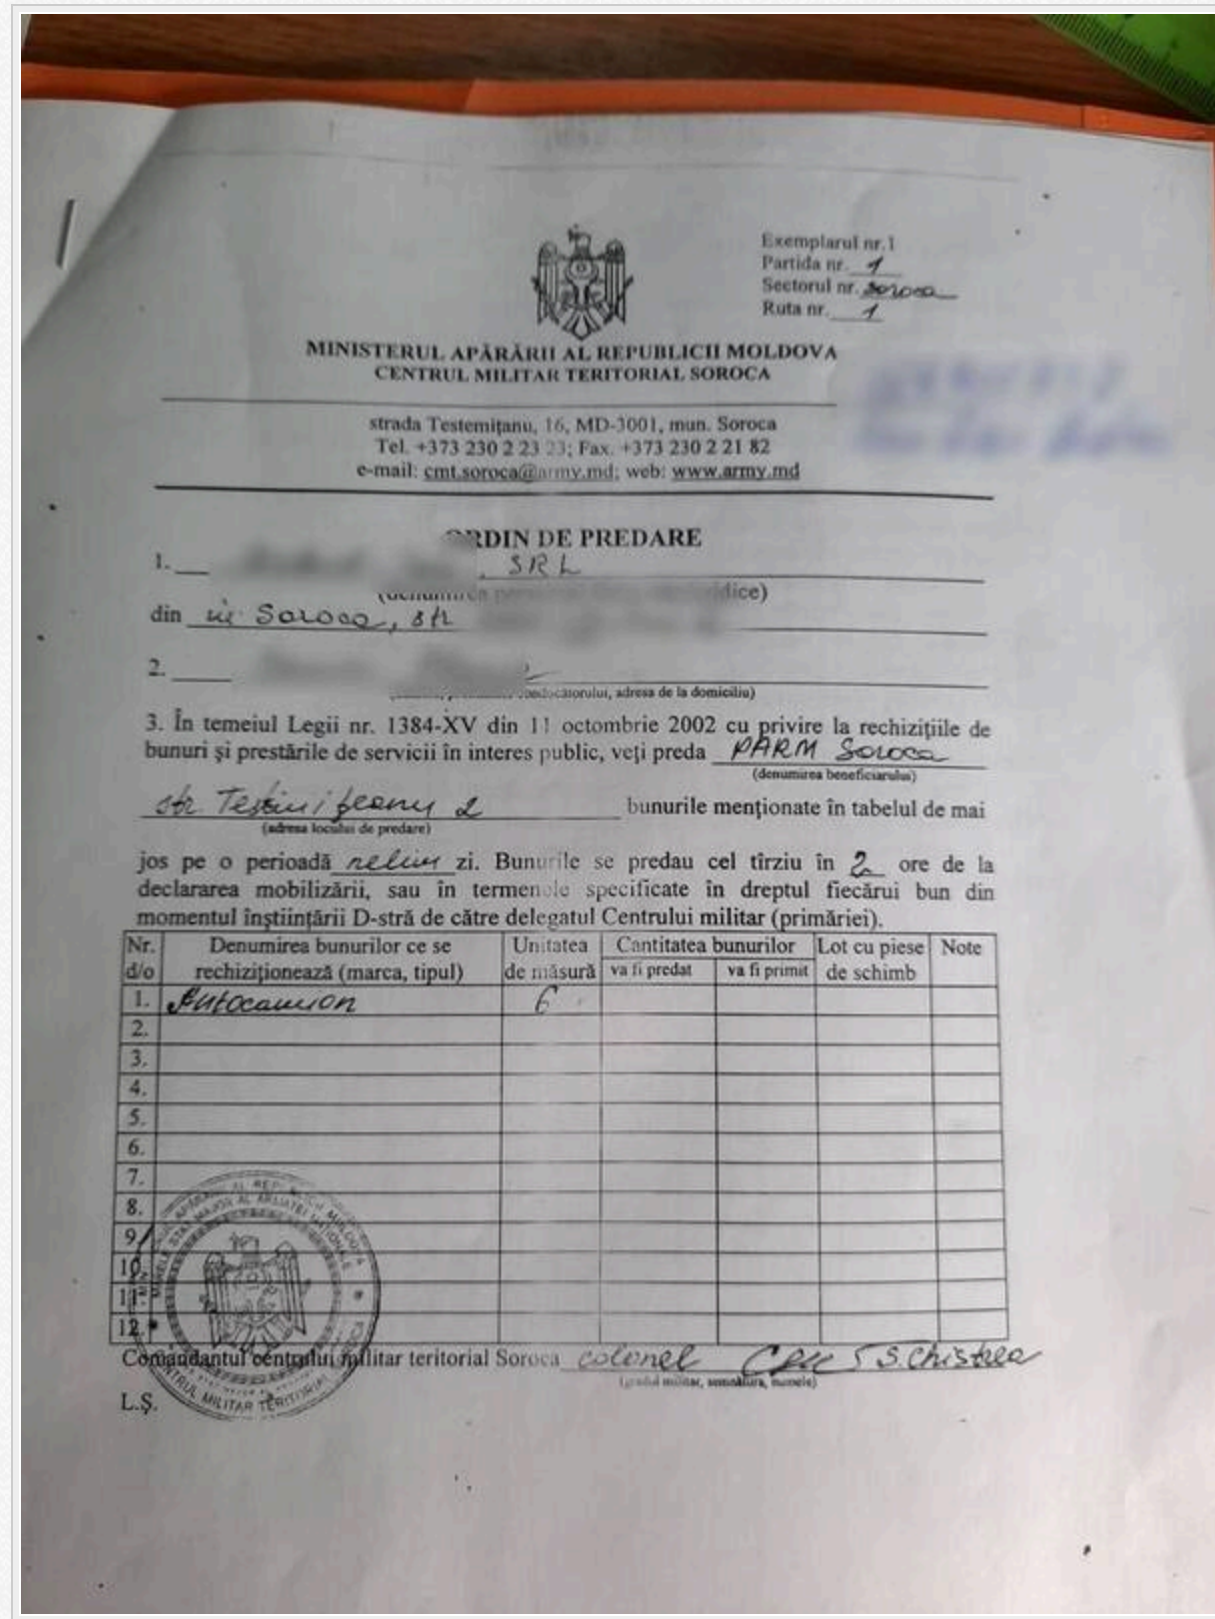 Exemplarul nr.1
Partida nr. 1
Sectorul nr. Soroca
Ruta nr. 1
MINISTERUL APĂRĂRII AL REPUBLICII MOLDOVA
CENTRUL MILITAR TERITORIAL SOROCA
strada Testemiţanu, 16, MD-3001, mun. Soroca
Tel. +373 230 2 23 23; Fax. +373 230 2 21 82
e-mail: cmt.soroca@army.md; web: www.army.md
ORDIN DE PREDARE
1. SRL
din Soroca, str
2.
adresa de la domiciliu)
3. În temeiul Legii nr. 1384-XV din 11 octombrie 2002 cu privire la rechiziţiile de
bunuri şi prestările de servicii în interes public, veţi preda PARM Soroca
(denumirea beneficiarului)
str 2 bunurile menţionate în tabelul de mai
(adresa locului de predare)
jos pe o perioadă zi. Bunurile se predau cel tîrziu în 2 ore de la
declararea mobilizării, sau în termenele specificate în dreptul fiecărui bun din
momentul înştiinţării D-stră de către delegatul Centrului militar (primăriei).
Nr. d/o Denumirea bunurilor ce se rechiziţionează (marca, tipul) Unitatea de măsură Cantitatea bunurilor Lot cu piese de schimb Note
va fi predat va fi primit
1. Autocamion 6
2.
3.
4.
5.
6.
7.
8.
9.
10.
11.
12.
Comandantul centrului militar teritorial Soroca colonel S. Chistrea
(gradul militar, semnătura, numele)
L.Ş.
CENTRUL MILITAR TERITORIAL